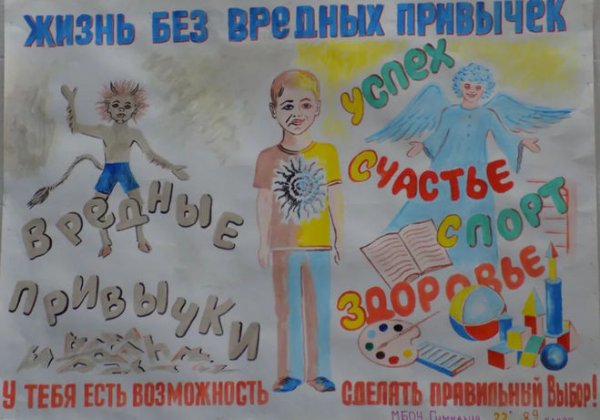 ЖИЗНЬ БЕЗ ВРЕДНЫХ ПРИВЫЧЕК
УСПЕХ
СЧАСТЬЕ
СПОРТ
ЗДОРОВЬЕ
ВРЕДНЫЕ
ПРИВЫЧКИ
У ТЕБЯ ЕСТЬ ВОЗМОЖНОСТЬ СДЕЛАТЬ ПРАВИЛЬНЫЙ ВЫБОР!
МБОУ Гимназия